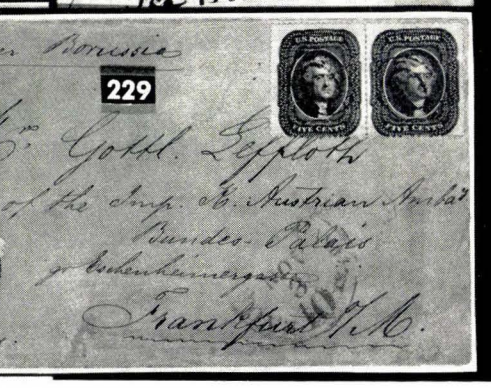 Borussia
U.S. POSTAGE
FIVE CENTS
U.S. POSTAGE
FIVE CENTS
229
Gottl. Geffloth
of the Imp. K. Austrian Ambad
Bundes-Palais
gr Eschenheimergasse
Frankfurt /M.